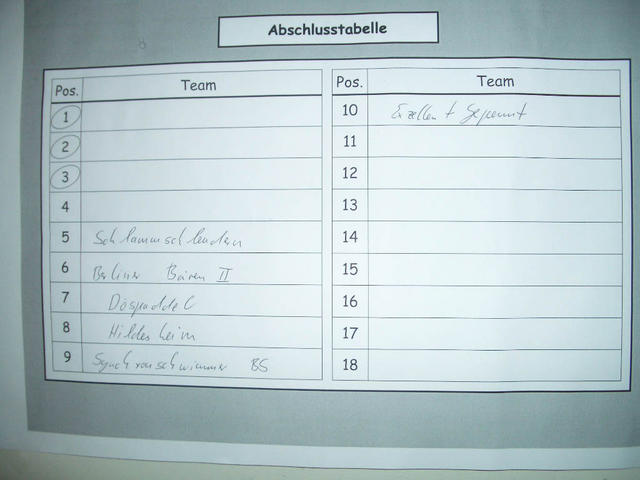 Abschlusstabelle
Pos. Team
1
2
3
4
5 Schlammschleudern
6 Berliner Bären II
7 Dospaddel
8 Hildesheim
9 Synchronschwimmer BS
Pos. Team
10 Exzellent Gespannt
11
12
13
14
15
16
17
18